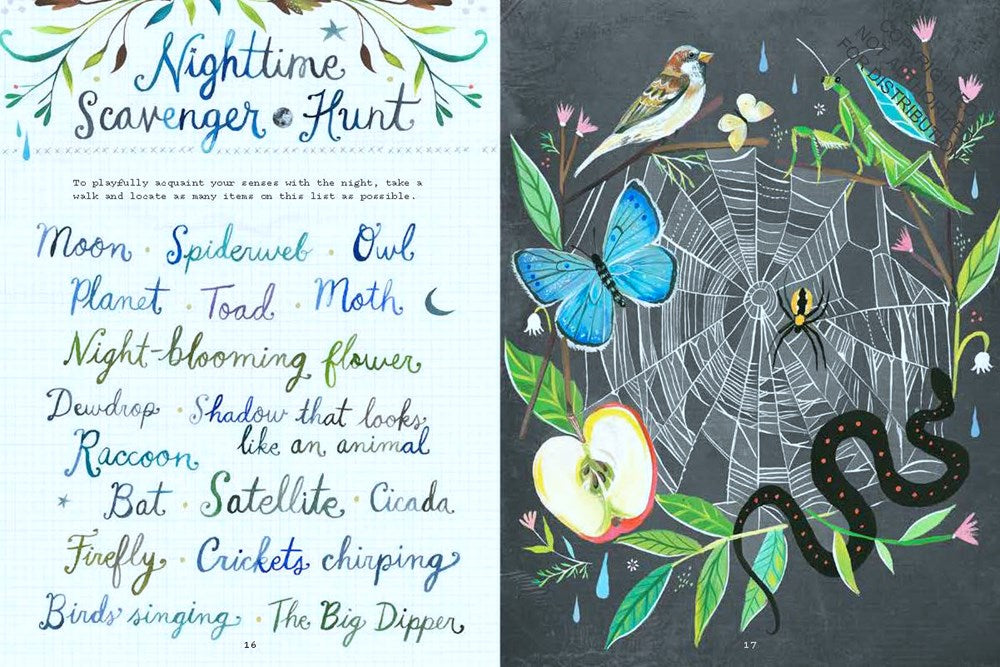 Nighttime
Scavenger Hunt
To playfully acquaint your senses with the night, take a
walk and locate as many items on this list as possible.
Moon · Spiderweb · Owl
Planet · Toad · Moth
Night-blooming flower
Dewdrop · Shadow that looks
like an animal
Raccoon
Bat · Satellite · Cicada
Firefly · Crickets chirping
Birds singing · The Big Dipper
16
COPYRIGHTED
NOT AUTHORIZED
FOR DISTRIBUTION
17